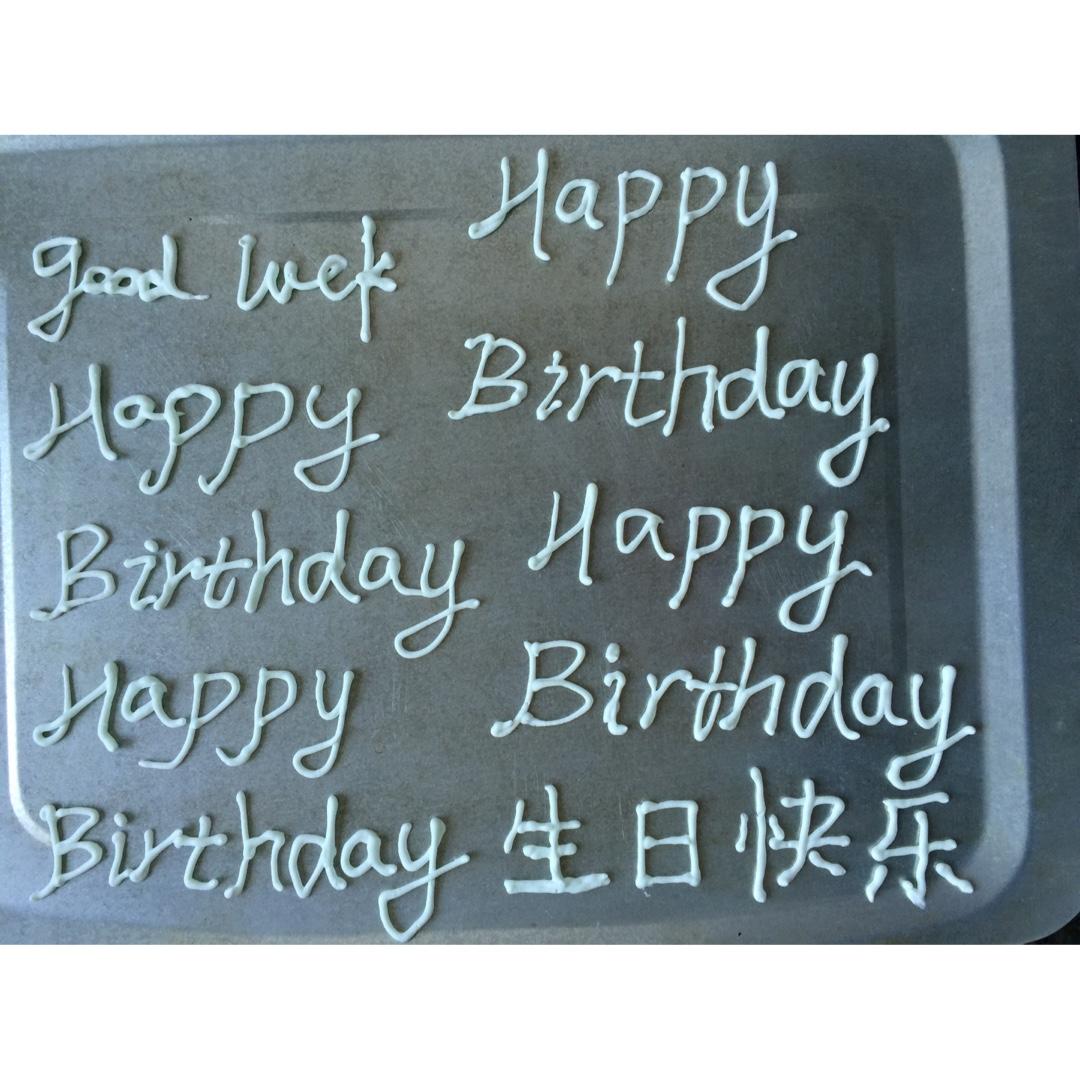 good luck
Happy
Birthday
Happy
Birthday
Happy
Birthday
Happy
Birthday
生日快乐